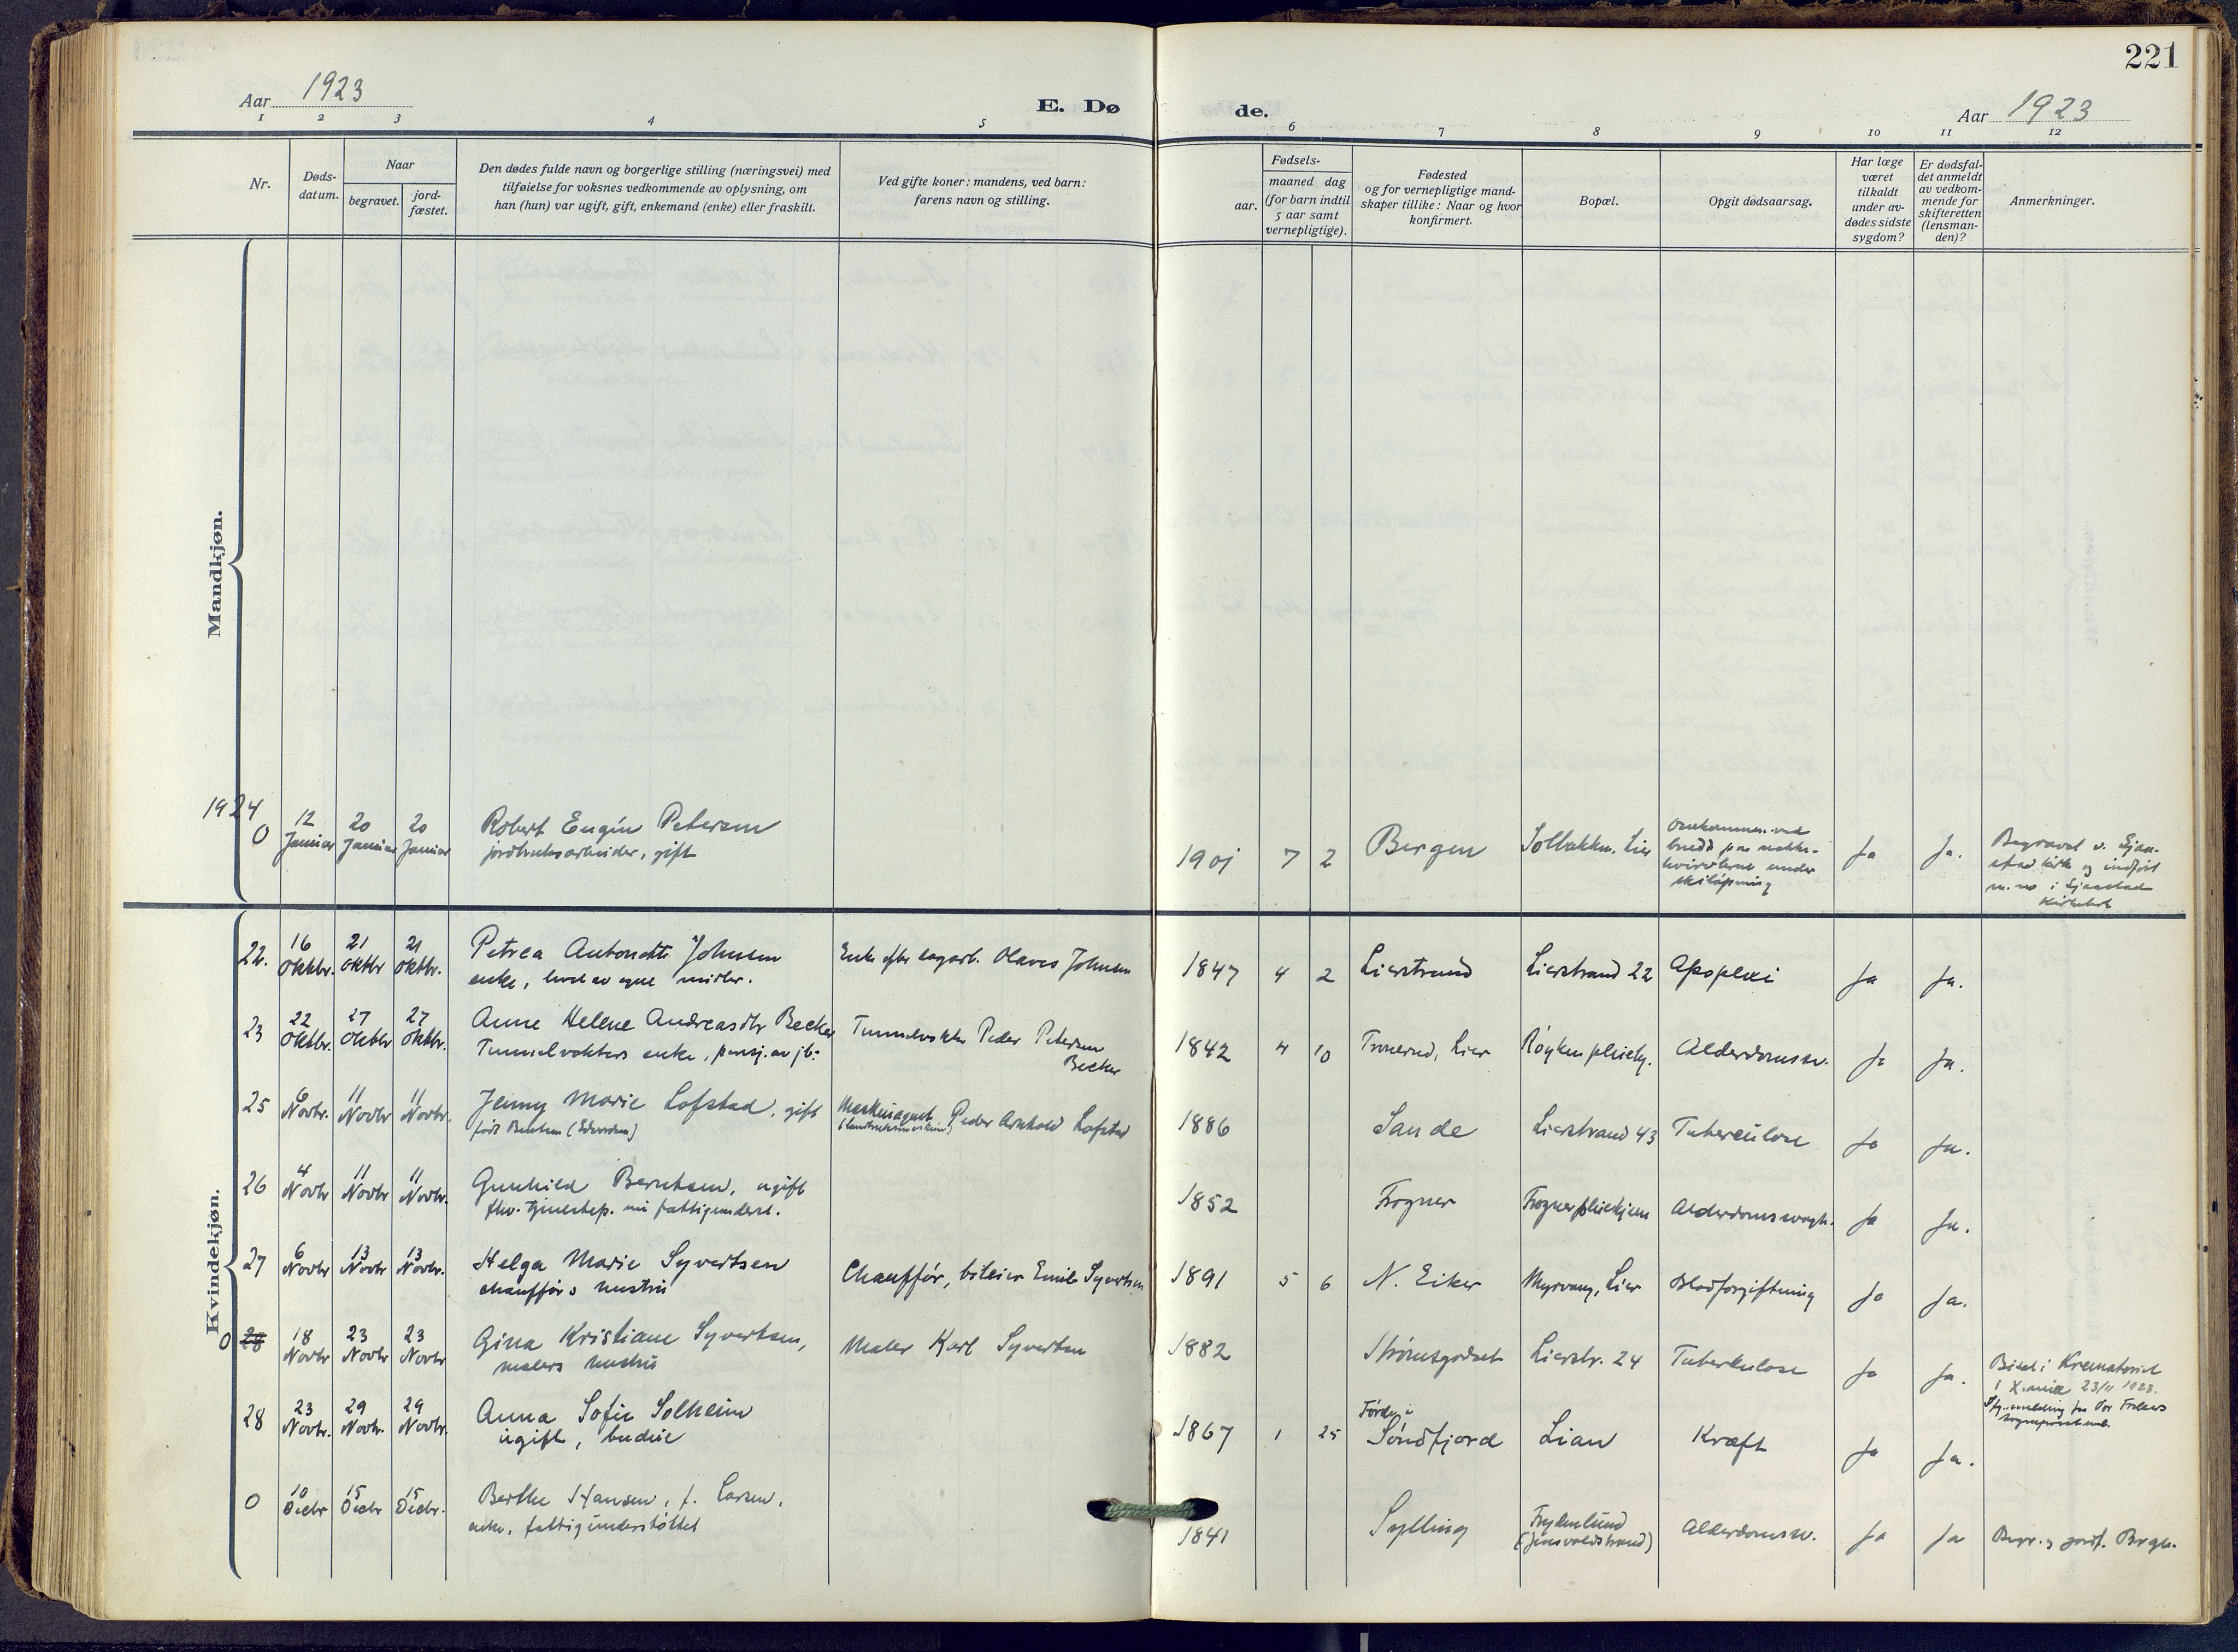 221
Aar 1923
E. Dø
de.
Aar 1923
1 2 3 4 5 6 7 8 9 10 11 12
Nr.
Døds-
datum.
Naar
begravet.
jord-
fæstet.
Den dødes fulde navn og borgerlige stilling (næringsvei) med
tilføielse for voksnes vedkommende av oplysning, om
han (hun) var ugift, gift, enkemand (enke) eller fraskilt.
Ved gifte koner: mandens, ved barn:
farens navn og stilling.
Fødsels-
aar.
maaned dag
(for barn indtil
5 aar samt
vernepligtige).
Fødested
og for vernepligtige mand-
skaper tillike: Naar og hvor
konfirmert.
Bopæl.
Opgit dødsaarsag.
Har læge
været
tilkaldt
under av-
dødes sidste
sygdom?
Er dødsfal-
det anmeldt
av vedkom-
mende for
skifteretten
(lensman-
den)?
Anmerkninger.
Mandkjøn.
1924
0 12 Januar 20 Januar 20 Januar
Robert Eugin Petersen
jordbruksarbeider, gift
7 2 Bergen Solbakken, Lier
Omkommen ved
brudd paa nakke-
hvirvlerne under
skiløpning
Ja Ja.
Begravet v. Sjaa-
stad kirke og indført
i Sjaastad
Kvindekjøn.
22. 16 Oktbr. 21 Oktbr 21 Oktbr.
Petrea Antonette Johnsen
enke, levet av egne midler.
Enke efter Olaves Johnsen
1847 4 2 Lierstrand Lierstrand 22 Apoplexi Ja Ja.
23 22 Oktbr. 27 Oktbr 27 Oktbr.
Anne Helene Andreasdtr Becker
Tunnelvokters enke,
Tunnelvokter Peder Petersen
Becker
1842 4 10 Lier Røyken pleiehj. Alderdomssv. Ja Ja.
25 6 Novbr. 11 Novbr 11 Novbr.
Jenny Marie Lofstad, gift
født
Peder Arnhold Lofstad
1886 Sande Lierstrand 43 Tuberculose Ja Ja.
26 4 Novbr 11 Novbr 11 Novbr.
Gunhild Berntsen, ugift
fhv. tjenestep. nu fattigunderst.
1852 Frogner Frogner pleiehjem Alderdomssvagh. Ja Ja.
27 6 Novbr 13 Novbr 13 Novbr.
Helga Marie Syvertsen
chauffør's hustru
Chauffør, bileier Emil Syvertsen
1891 5 6 N. Eiker Myrvang, Lier Blodforgiftning Ja Ja.
0 28 18 Novbr 23 Novbr 23 Novbr
Gina Kristiane Syvertsen,
malers hustru
Maler Karl Syvertsen
1882 Strømsgodset Lierstr. 24 Tuberkulose Ja Ja.
Krematoriet
i X.ania 23/11 1923.
28 23 Novbr. 29 Novbr. 29 Novbr.
Anna Sofie Solheim
ugift, budeie
1867 1 25
Førde i
Søndfjord Lian Kræft Ja Ja.
0 10 Decbr 15 Decbr 15 Decbr.
Berthe Hansen, f. Larsen,
enke, fattigunderstøttet
1841 Sylling
Frydenlund
Alderdomssv. Ja Ja
Begr. og jordf.